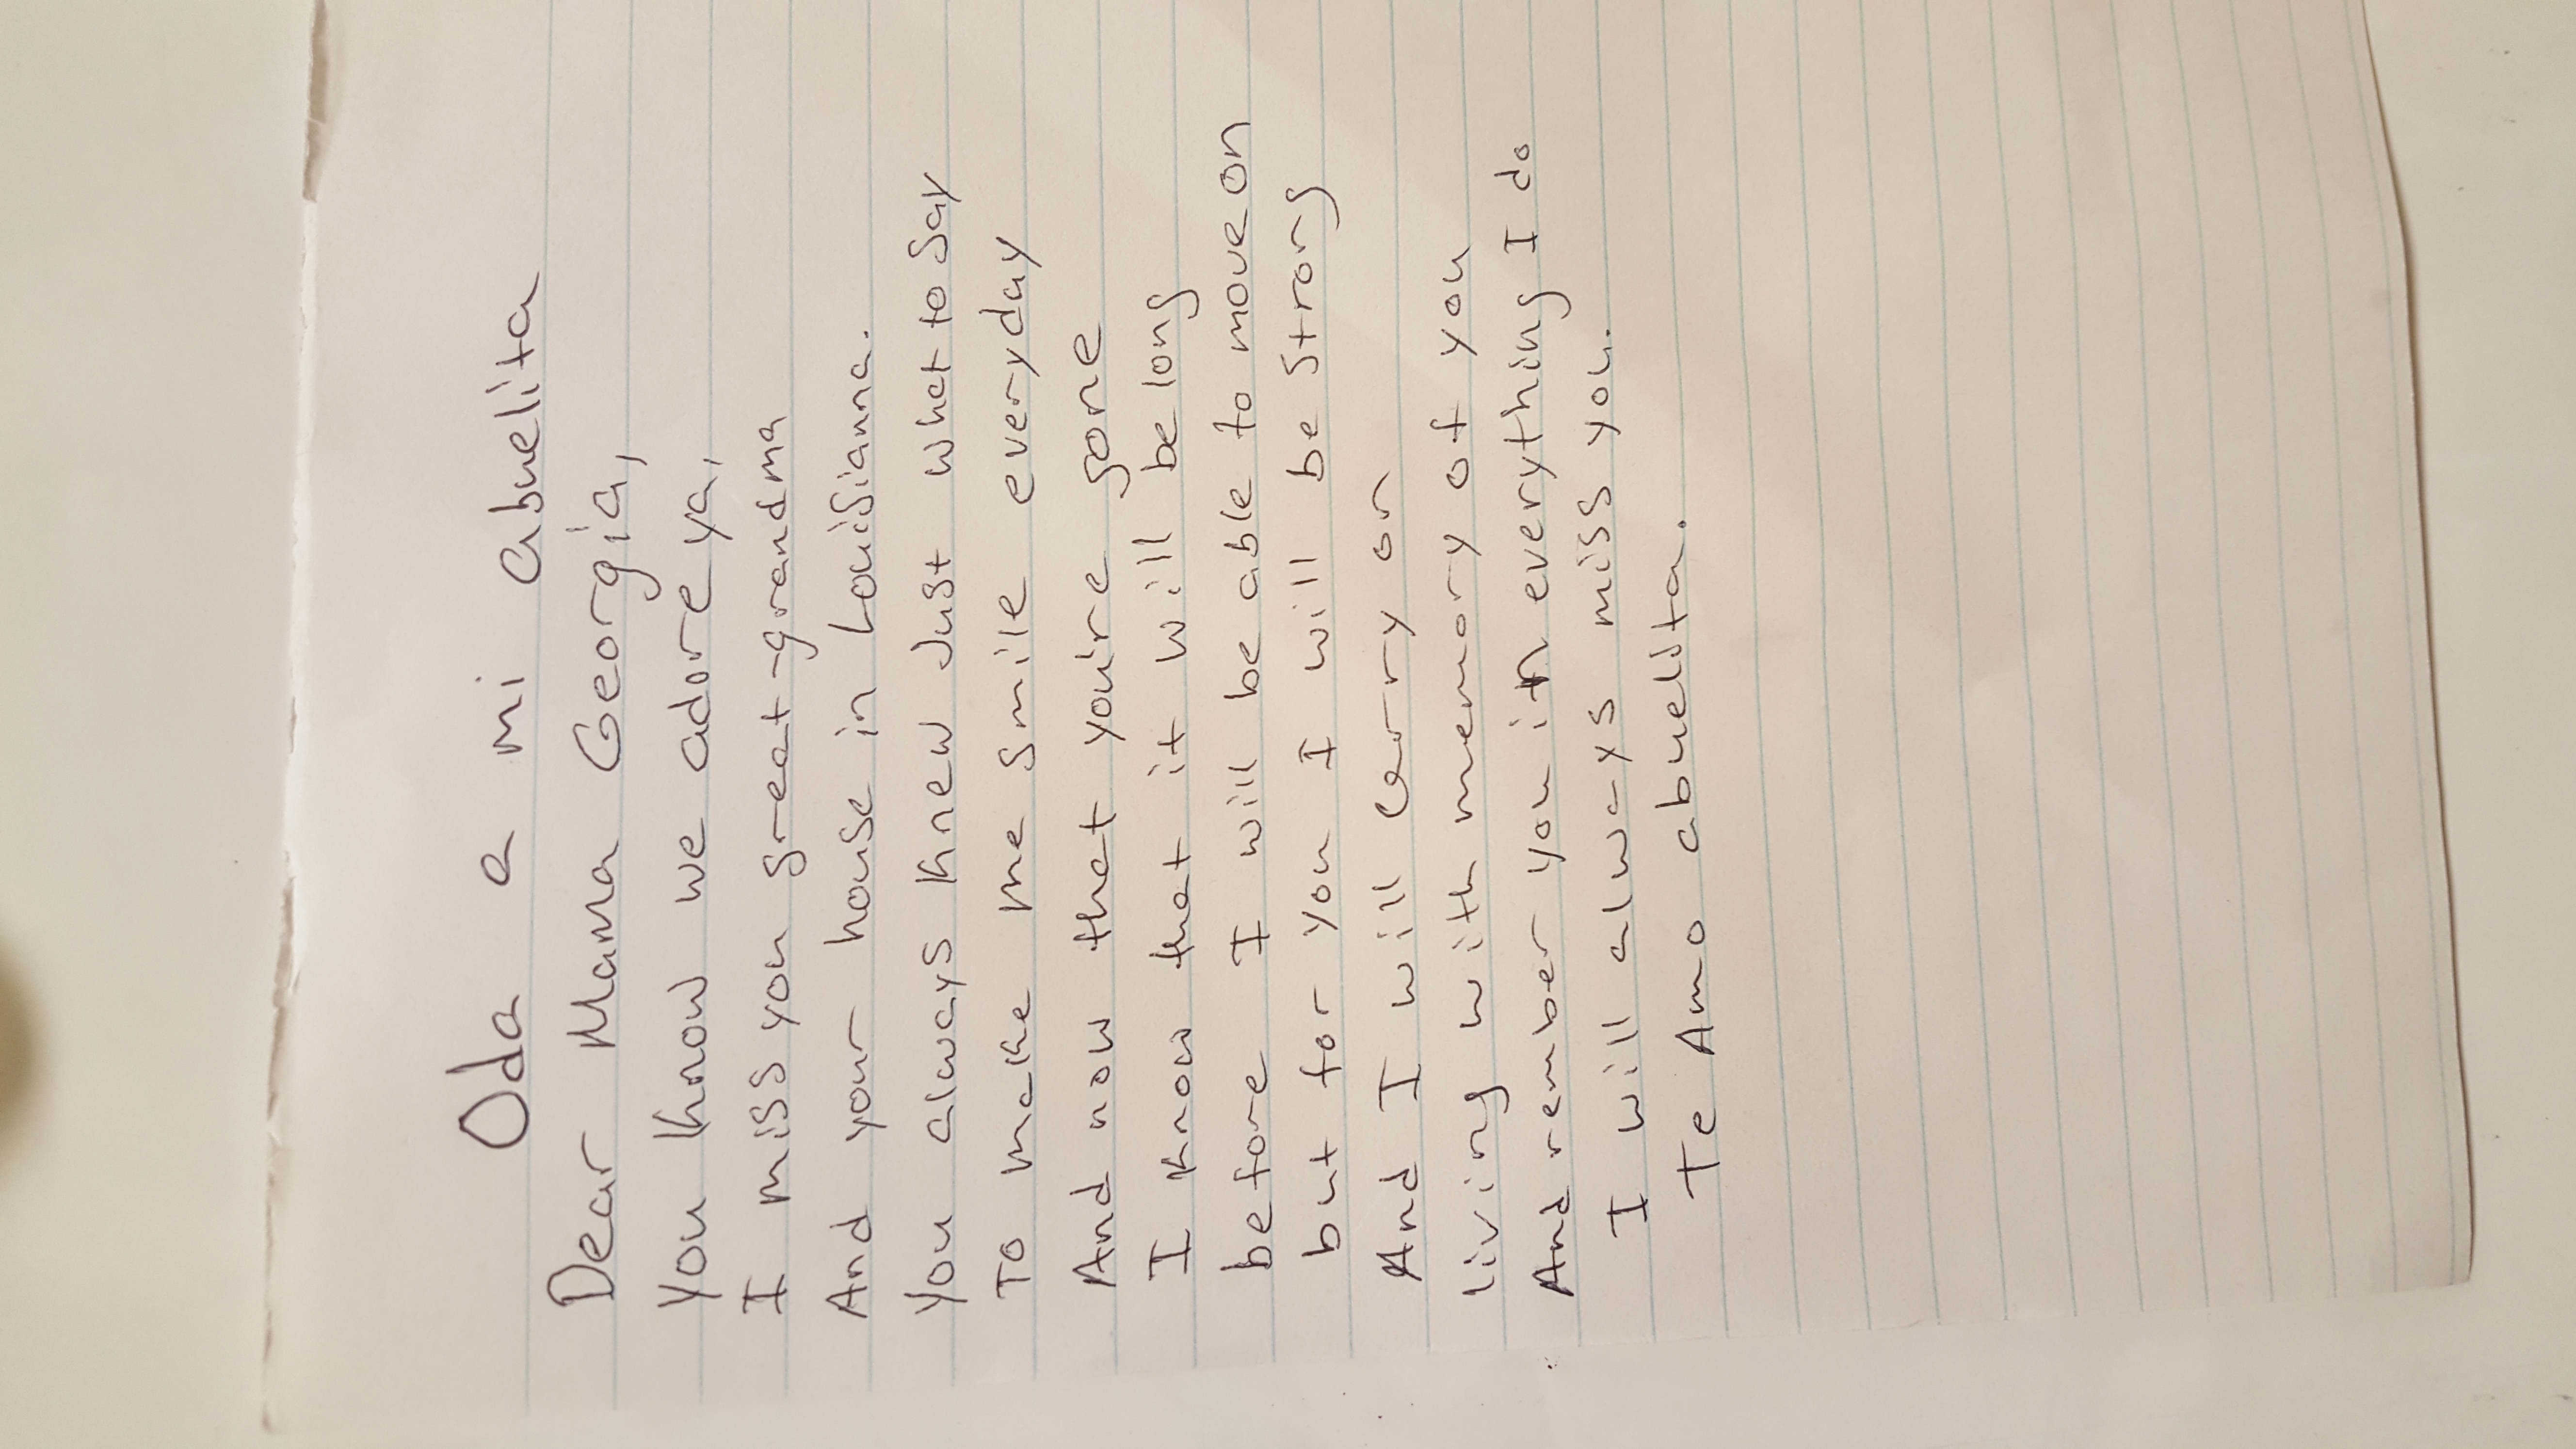 Oda a mi abuelita
Dear Mama Georgia,
You know we adore ya,
I miss you great-grandma
And your house in Louisianna.
You always knew Just what to say
To make me smile everyday
And now that you're gone
I know that it will be long
before I will be able to move on
but for you I will be strong
And I will carry on
living with memory of you
And rember you in everything I do
I will always miss you.
Te Amo abuelita.